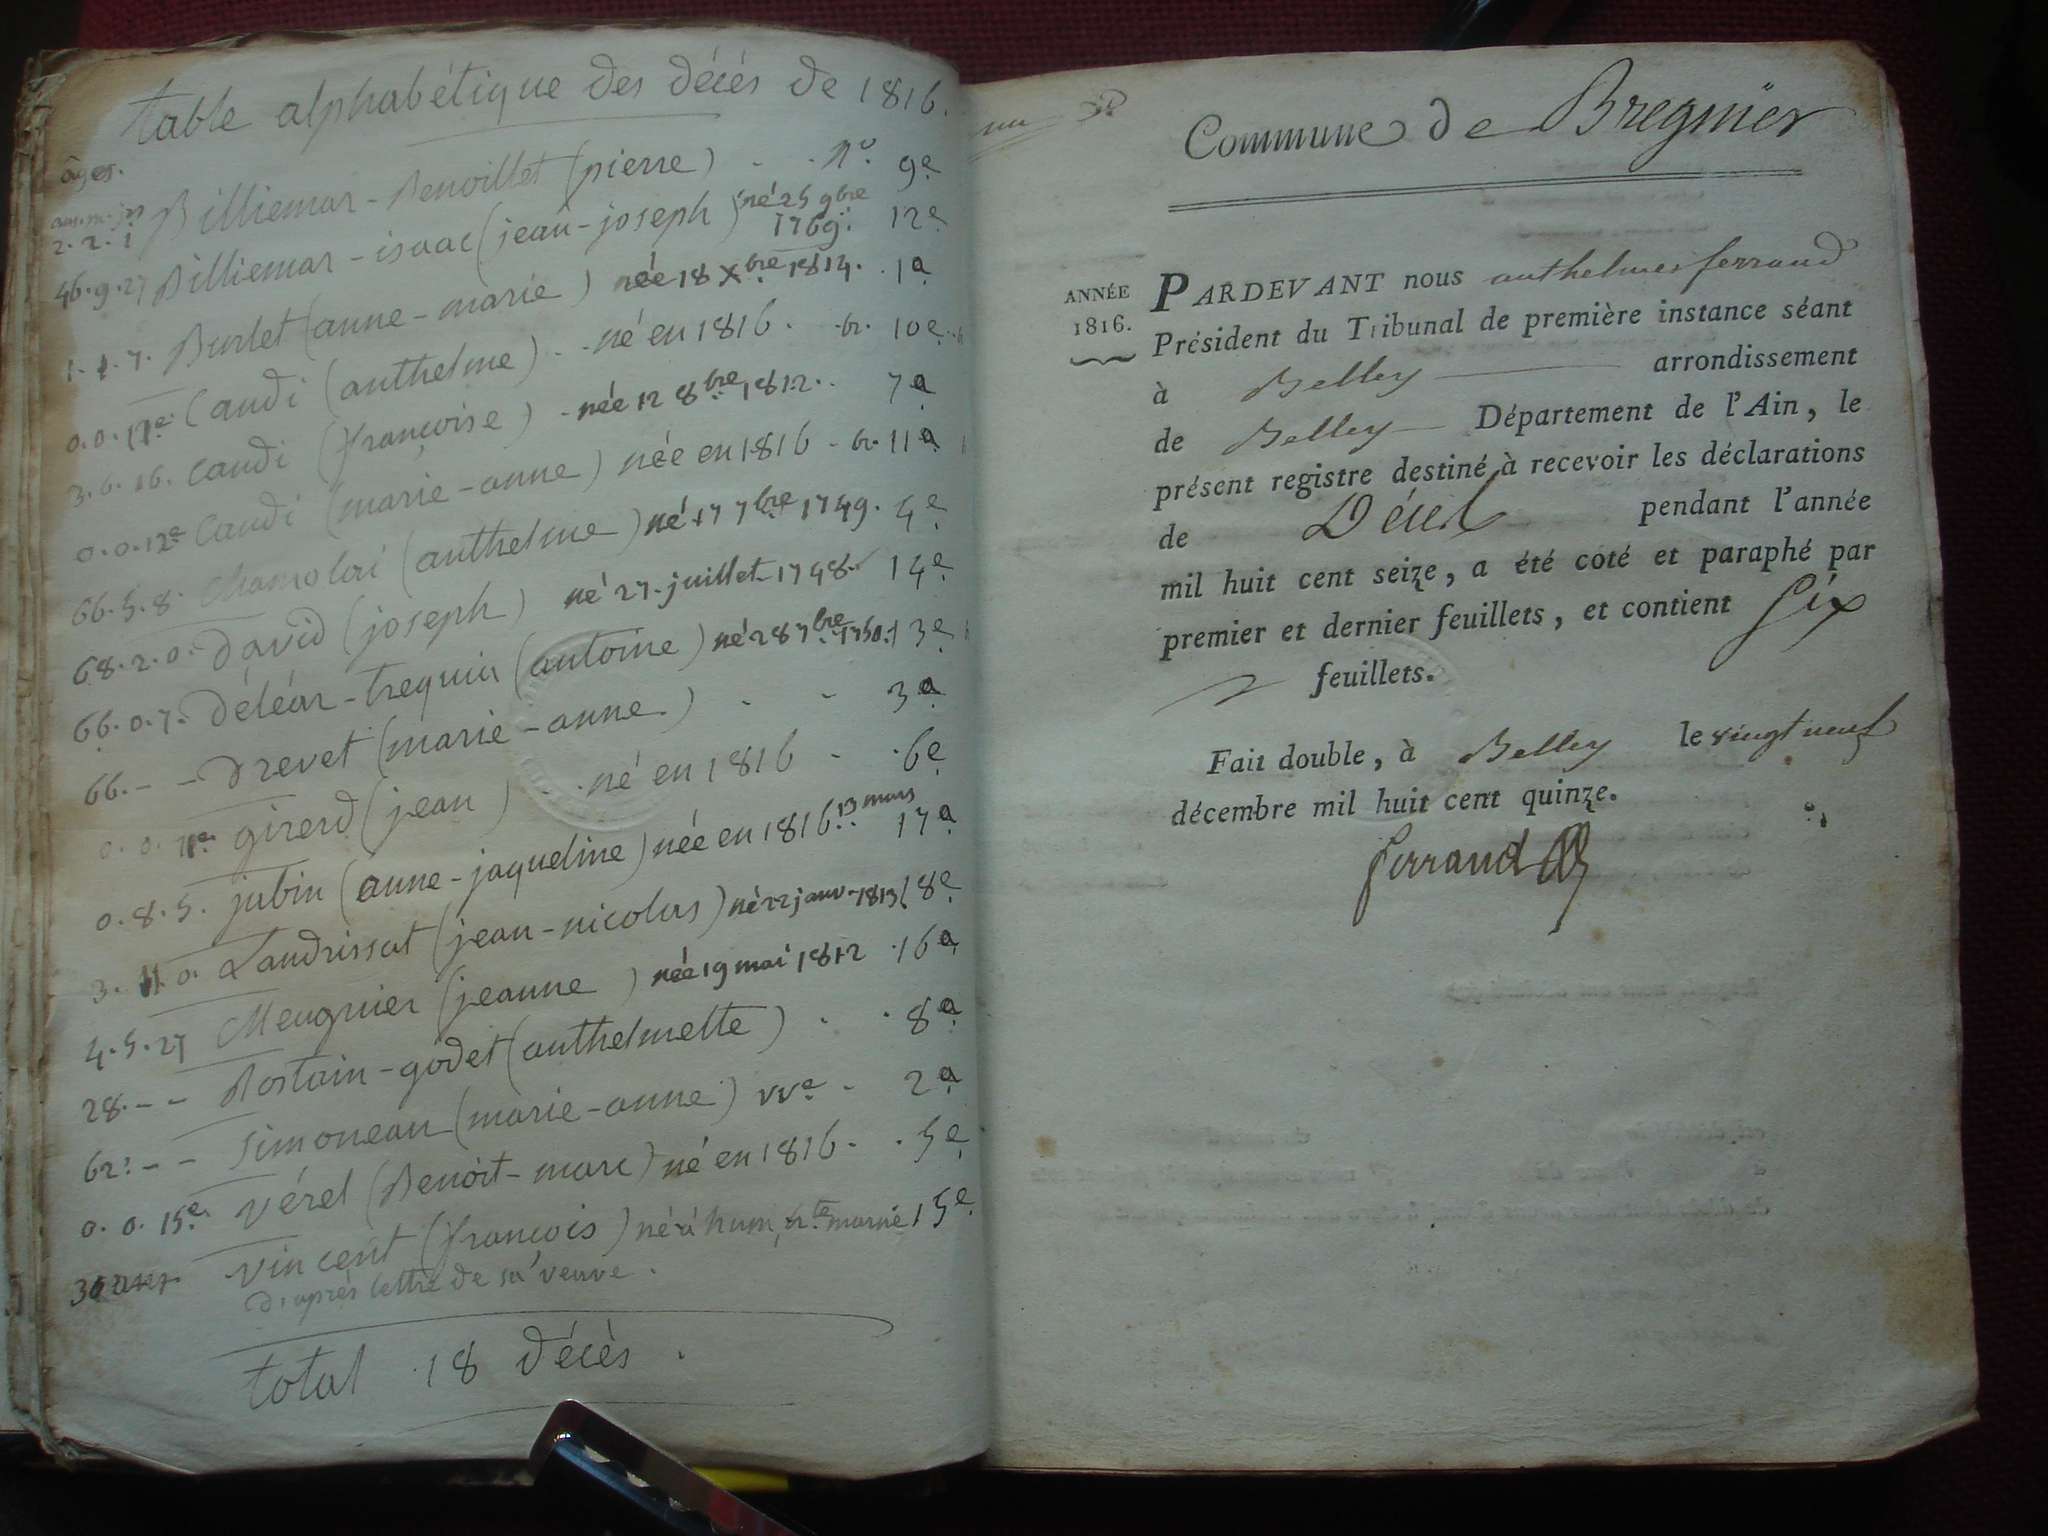 table alphabétique des décés de 1816.
âges.
an. m. jrs
2. 2. 1 Billiemar - Benoillet (pierre) . . n° 9e
46. 9. 27 Billiemar - isaac (jean - joseph) né 25 9bre 1769. 12e
1. 1. 7. Burlet (anne - marie) née 18 Xbre 1814. . 1a
0. 0. 17e Caudi (anthelme) . . né en 1816 . . br. 10e
3. 6. 16. Caudi (françoise) . née 12 8bre 1812 . . 7a
0. 0. 12e Caudi (marie - anne) née en 1816 - br. 11a
66. 5. 8. (anthelme) né 17 7bre 1749. 4e
68. 2. 0. David (joseph) né 27 juillet 1748. 14e
66. 0. 7. Déléar - trequin (antoine) né 28 7bre 1750. 13e
66. - - Drevet (marie - anne) . - 3a
0. 0. girerd (jean) . . né en 1816 - . 6e
0. 8. 5. jubin (anne - jaqueline) née en 1816. 13 mars 17a
3. 11. 0. Landrissat (jean - nicolas) né 22 janv. 1813 18e
4. 5. 27 Meugnier (jeanne) née 19 mai 1812 . 16a
28. - - Rostain - godet (anthelmette) . . 8a
62. - - Simoneau (marie - anne) vve - 2a
0. 0. 15e Vérel (Benoit - marc) né en 1816 - . 5e
Vincent (françois) né à hum, hte marne 15e
d'après lettre de sa veuve .
total 18 décès .
Commune de Bregnier
ANNÉE
1816.
PARDEVANT nous anthelme ferrand
Président du Tribunal de première instance séant
à Belley arrondissement
de Belley Département de l'Ain, le
présent registre destiné à recevoir les déclarations
de Décès pendant l'année
mil huit cent seize, a été coté et paraphé par
premier et dernier feuillets, et contient Six
feuillets.
Fait double, à Belley le vingt neuf
décembre mil huit cent quinze.
ferrand